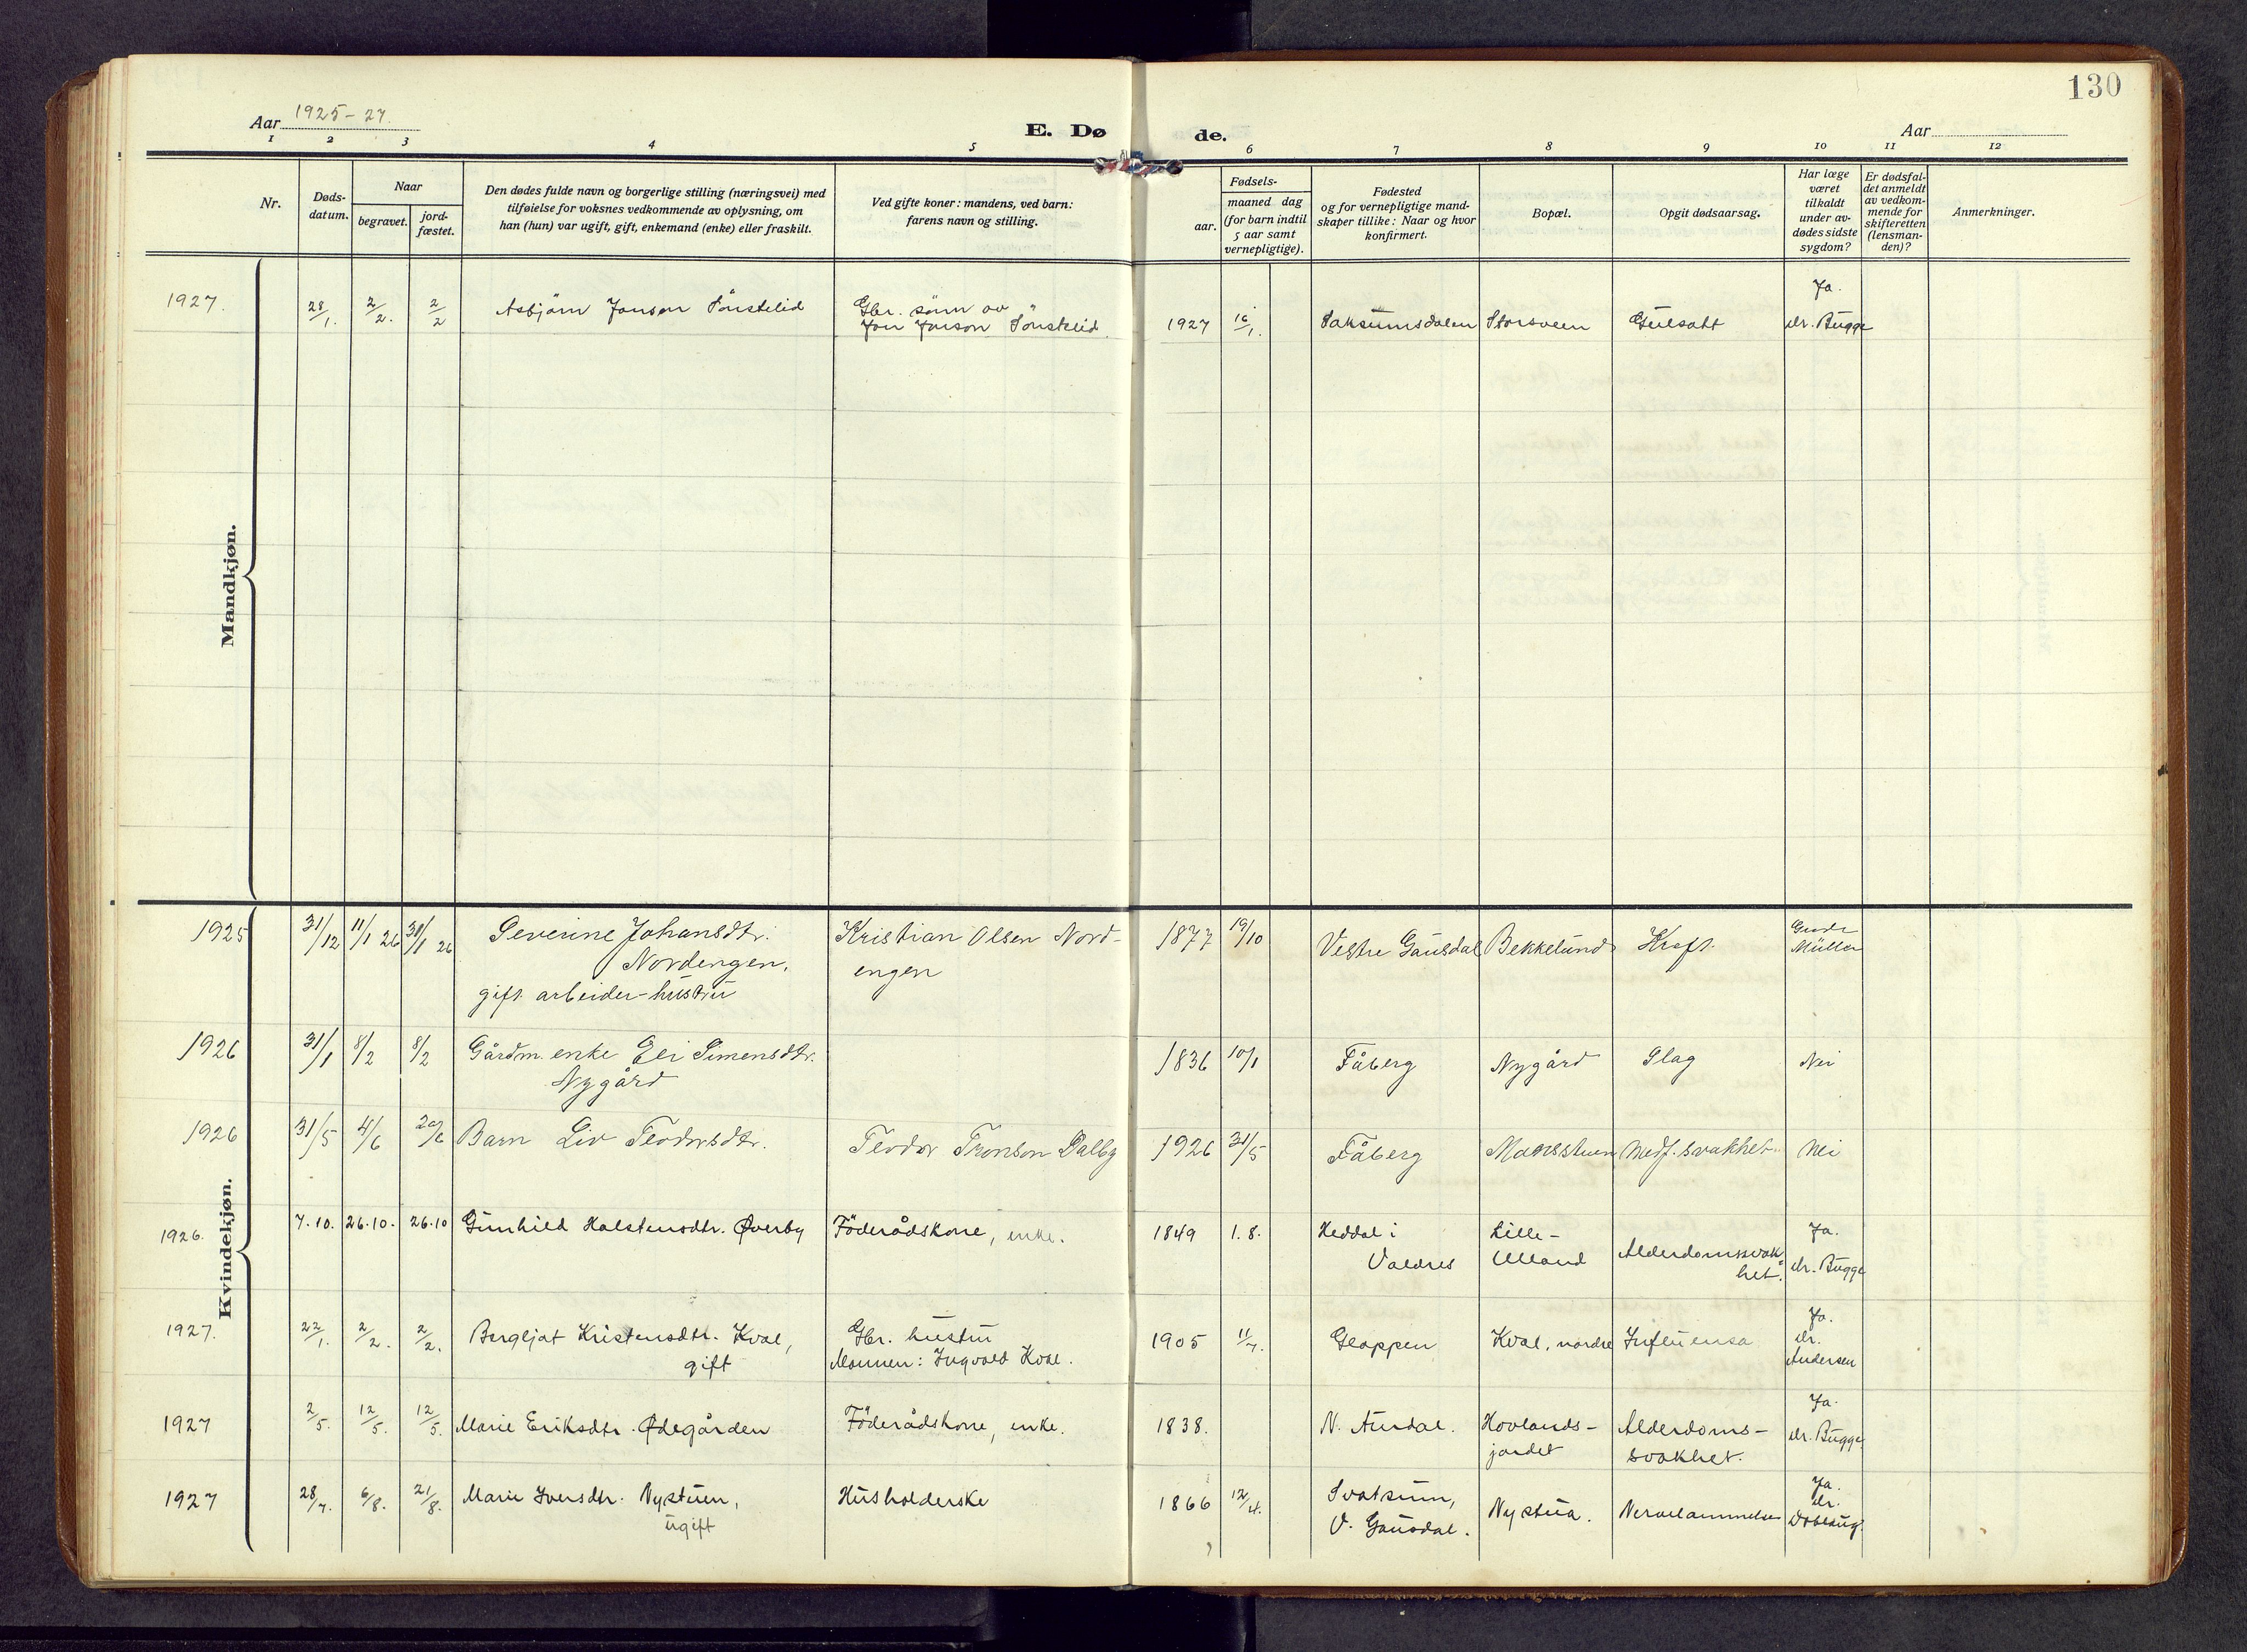 130
Aar 1925-27.
E. Dø
de.
Aar
1 2 3 4 5 6 7 8 9 10 11 12
Nr.
Døds-
datum.
Naar
begravet.
jord-
fæstet.
Den dødes fulde navn og borgerlige stilling (næringsvei) med
tilføielse for voksnes vedkommende av oplysning, om
han (hun) var ugift, gift, enkemand (enke) eller fraskilt.
Ved gifte koner: mandens, ved barn:
farens navn og stilling.
Fødsels-
aar.
maaned dag
(for barn indtil
5 aar samt
vernepligtige).
Fødested
og for vernepligtige mand-
skaper tillike: Naar og hvor
konfirmert.
Bopæl.
Opgit dødsaarsag.
Har læge
været
tilkaldt
under av-
dødes sidste
sygdom?
Er dødsfal-
det anmeldt
av vedkom-
mende for
skifteretten
(lensman-
den)?
Anmerkninger.
Mandkjøn.
1927. 28/1. 2/2. 2/2 Asbjörn Jonson Sönstelid
Gbr. sönn av
Jon Jonson Sönstelid.
1927 16/1. Saksumsdalen Storsveen Gulsott
Ja.
dr. Bugge
Kvindekjøn.
1925 31/12 11/1 26 31/1 26 Severine Johansdtr.
Nordengen,
gift arbeider-hustru
Kristian Olsen Nord-
engen
1877 19/10 Vestre Gausdal Bekkelund Kreft.
Müller
1926 31/1 8/2 8/2 Gårdm. enke Eli Simensdtr.
Nygård
1836 10/1 Fåberg Nygård Slag Nei
1926 31/5 4/6 20/6 Barn Liv Teodorsdtr.
Teodor Tronson Dalby
1926 31/5 Fåberg Monsstuen Medf. svakhet. Nei
1926. 7.10. 26.10. 26.10 Gunhild Halstensdtr. Øverby
Föderådskone, enke.
1849 1.8. Heddal i
Valdres
Lille-
Ulland
Alderdomssvak-
het.
Ja.
dr. Bugge
1927. 22/1. 2/2. 2/2. Bergljot Kristensdtr. Kval,
gift
Gbr. hustru
Mannen: Ingvald Kval.
1905 11/7. Gloppen Kval, nordre Influensa
Ja.
dr.
Andersen
1927 2/5. 12/5. 12/5. Marie Eriksdtr. Ødegården
Föderådskone, enke.
1838. N. Aurdal.
Hovlands-
jordet
Alderdoms-
svakhet.
Ja.
dr. Bugge
1927 28/7. 6/8. 21/8. Marie Iversdtr. Nystuen,
ugift
Husholderske
1866 12/4.
Svatsum,
V. Gausdal.
Nystua. Nervelammelse
Ja.
dr.